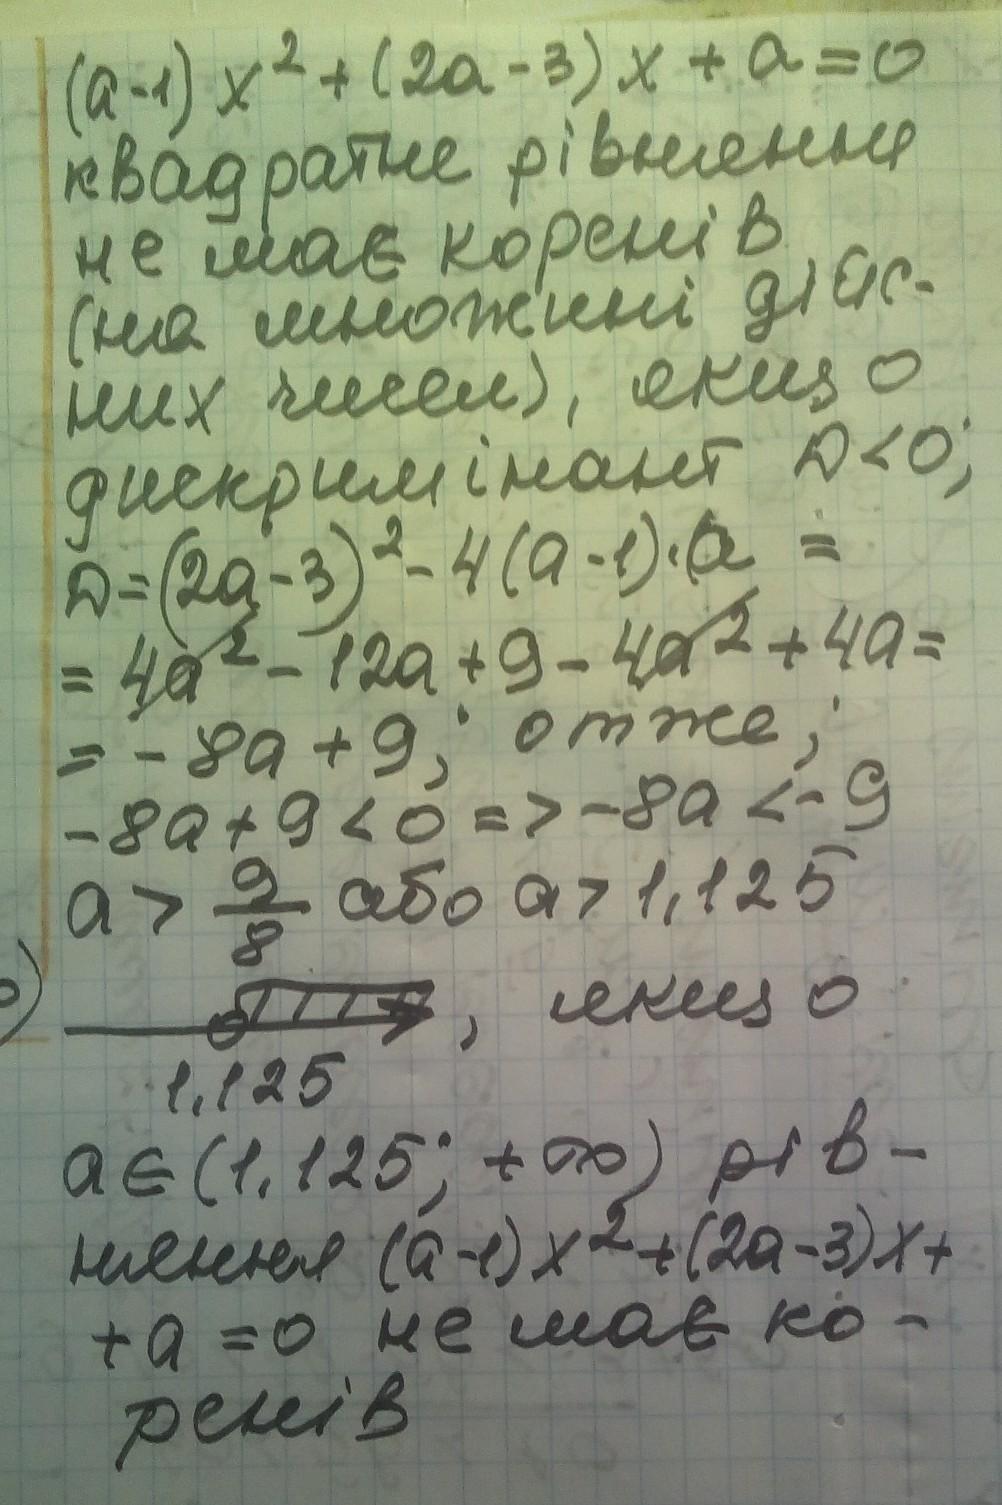 (a-1)x²+(2a-3)x+a=0
квадратне рівняння
не має коренів
(на множині дійс-
них чисел), якщо
дискримінант D<0;
D=(2a-3)²-4(a-1)·a =
= 4a²-12a+9-4a²+4a=
= -8a+9; отже;
-8a+9<0 => -8a<-9
a > 9/8 або a>1,125
, якщо
1,125
a∈(1,125; +∞) рів-
няння (a-1)x²+(2a-3)x+
+a=0 не має ко-
ренів